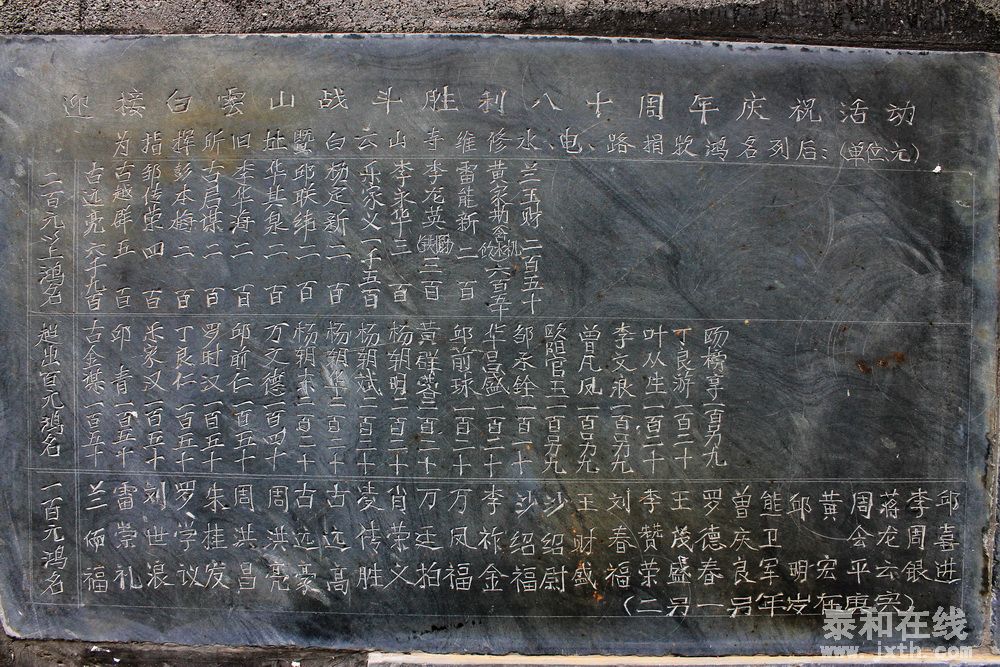 迎接白雲山战斗胜利八十周年庆祝活动
为指挥所旧址暨白云山寺维修水、电、路捐款鸿名列后：(单位：元)
二百元以上鸿名
古远亮六千九百
古越群五百
邹传荣四百
彭本梅二百
古启谋二百
李华海二百
华其泉二百
邱联纬二百
杨定新二百
乐家义一千五百
李来华三百
李龙英三百
雷能新二百
兰玉财二百五十
超出百元鸿名
古金慕一百五十
邱青一百五十
乐家汉一百五十
丁良仁一百五十
罗时汉一百五十
邱前仁一百五十
万文德一百四十
杨朝斌一百二十
杨朝明一百二十
邱前球一百二十
华昌盛一百二十
邹承铨一百一十
曾凡凤一百另九
李文浪一百另九
叶从生一百二十
丁良游一百二十
一百元鸿名
兰命福
雷崇礼
刘世浪
罗学议
朱桂发
周洪昌
周洪亮
古远豪
古远高
凌传胜
肖荣文
万廷柏
万凤福
李祚金
沙绍福
沙绍尉
王财钱
刘春福
李赞荣
王茂盛
罗德春
曾庆良
熊卫军
邱明
黄宏
周会平
蒋龙云
李周银
邱喜进
(二另一另年岁在庚寅)
泰和在线
www.jxth.com